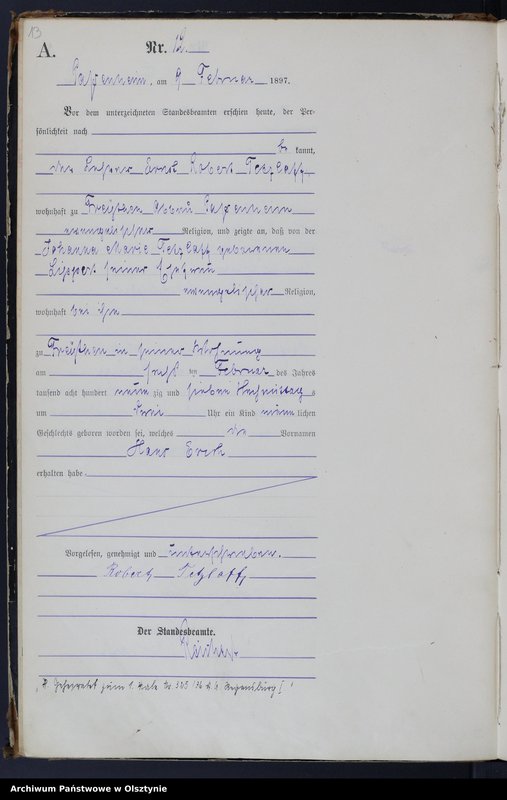 13
A.
Nr. 12.
Passenheim, am 9 Februar 1897.
Vor dem unterzeichneten Standesbeamten erschien heute, der Per-
sönlichkeit nach
be kannt,
der Ernst Robert Tetzlaff
wohnhaft zu Abbau Passenheim
evangelischer Religion, und zeigte an, daß von der
Johanna Marie Tetzlaff geborenen
Lippert seiner Ehefrau
evangelischer Religion,
wohnhaft bei ihm
zu in seiner Wohnung
am ten Februar des Jahres
tausend acht hundert neun zig und sieben Nachmittag s
um Uhr ein Kind männ lichen
Geschlechts geboren worden sei, welches die Vornamen
Hans Erich
erhalten habe.
Vorgelesen, genehmigt und unterschrieben.
Robert Tetzlaff
Der Standesbeamte.
zum 1. Male Nr. 305 Regensburg I
Archiwum Państwowe w Olsztynie